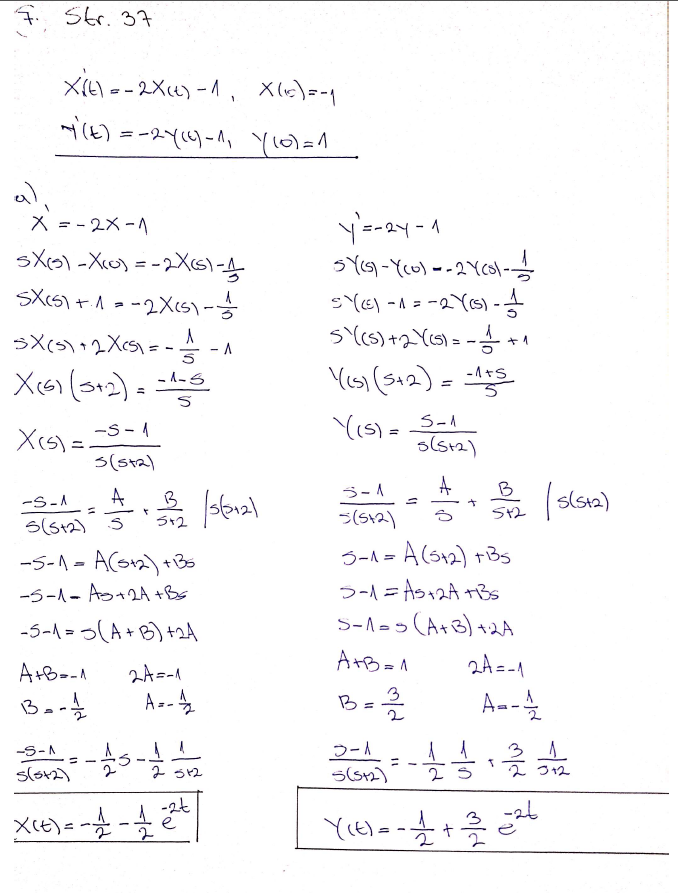 7. Str. 37
X'(t) = -2X(t) - 1, X(0) = -1
Y'(t) = -2Y(t) - 1, Y(0) = 1
a)
X' = -2X - 1
sX(s) - X(0) = -2X(s) - 1/s
sX(s) + 1 = -2X(s) - 1/s
sX(s) + 2X(s) = - 1/s - 1
X(s) (s+2) = (-1-s)/s
X(s) = (-s-1)/(s(s+2))
(-s-1)/(s(s+2)) = A/s + B/(s+2) | s(s+2)
-s-1 = A(s+2) + Bs
-s-1 = As + 2A + Bs
-s-1 = s(A+B) + 2A
A+B = -1 2A = -1
B = -1/2 A = -1/2
(-s-1)/(s(s+2)) = -1/2 s - 1/2 1/(s+2)
X(t) = -1/2 - 1/2 e^-2t
Y' = -2Y - 1
sY(s) - Y(0) = -2Y(s) - 1/s
sY(s) - 1 = -2Y(s) - 1/s
sY(s) + 2Y(s) = - 1/s + 1
Y(s) (s+2) = (-1+s)/s
Y(s) = (s-1)/(s(s+2))
(s-1)/(s(s+2)) = A/s + B/(s+2) | s(s+2)
s-1 = A(s+2) + Bs
s-1 = As + 2A + Bs
s-1 = s(A+B) + 2A
A+B = 1 2A = -1
B = 3/2 A = -1/2
(s-1)/(s(s+2)) = -1/2 1/s + 3/2 1/(s+2)
Y(t) = -1/2 + 3/2 e^-2t